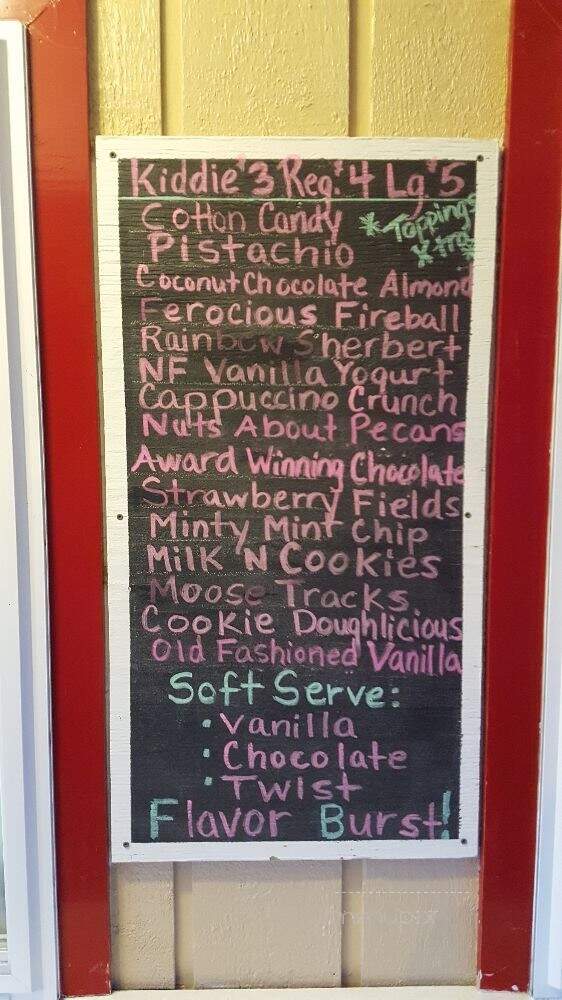 Kiddie $3 Reg. $4 Lg $5
Cotton Candy
* Toppings
Xtra *
Pistachio
Coconut Chocolate Almond
Ferocious Fireball
Rainbow Sherbert
NF Vanilla Yogurt
Cappuccino Crunch
Nuts About Pecans
Award Winning Chocolate
Strawberry Fields
Minty Mint Chip
Milk 'N Cookies
Moose Tracks
Cookie Doughlicious
Old Fashioned Vanilla
Soft Serve:
• Vanilla
• Chocolate
• Twist
Flavor Burst!